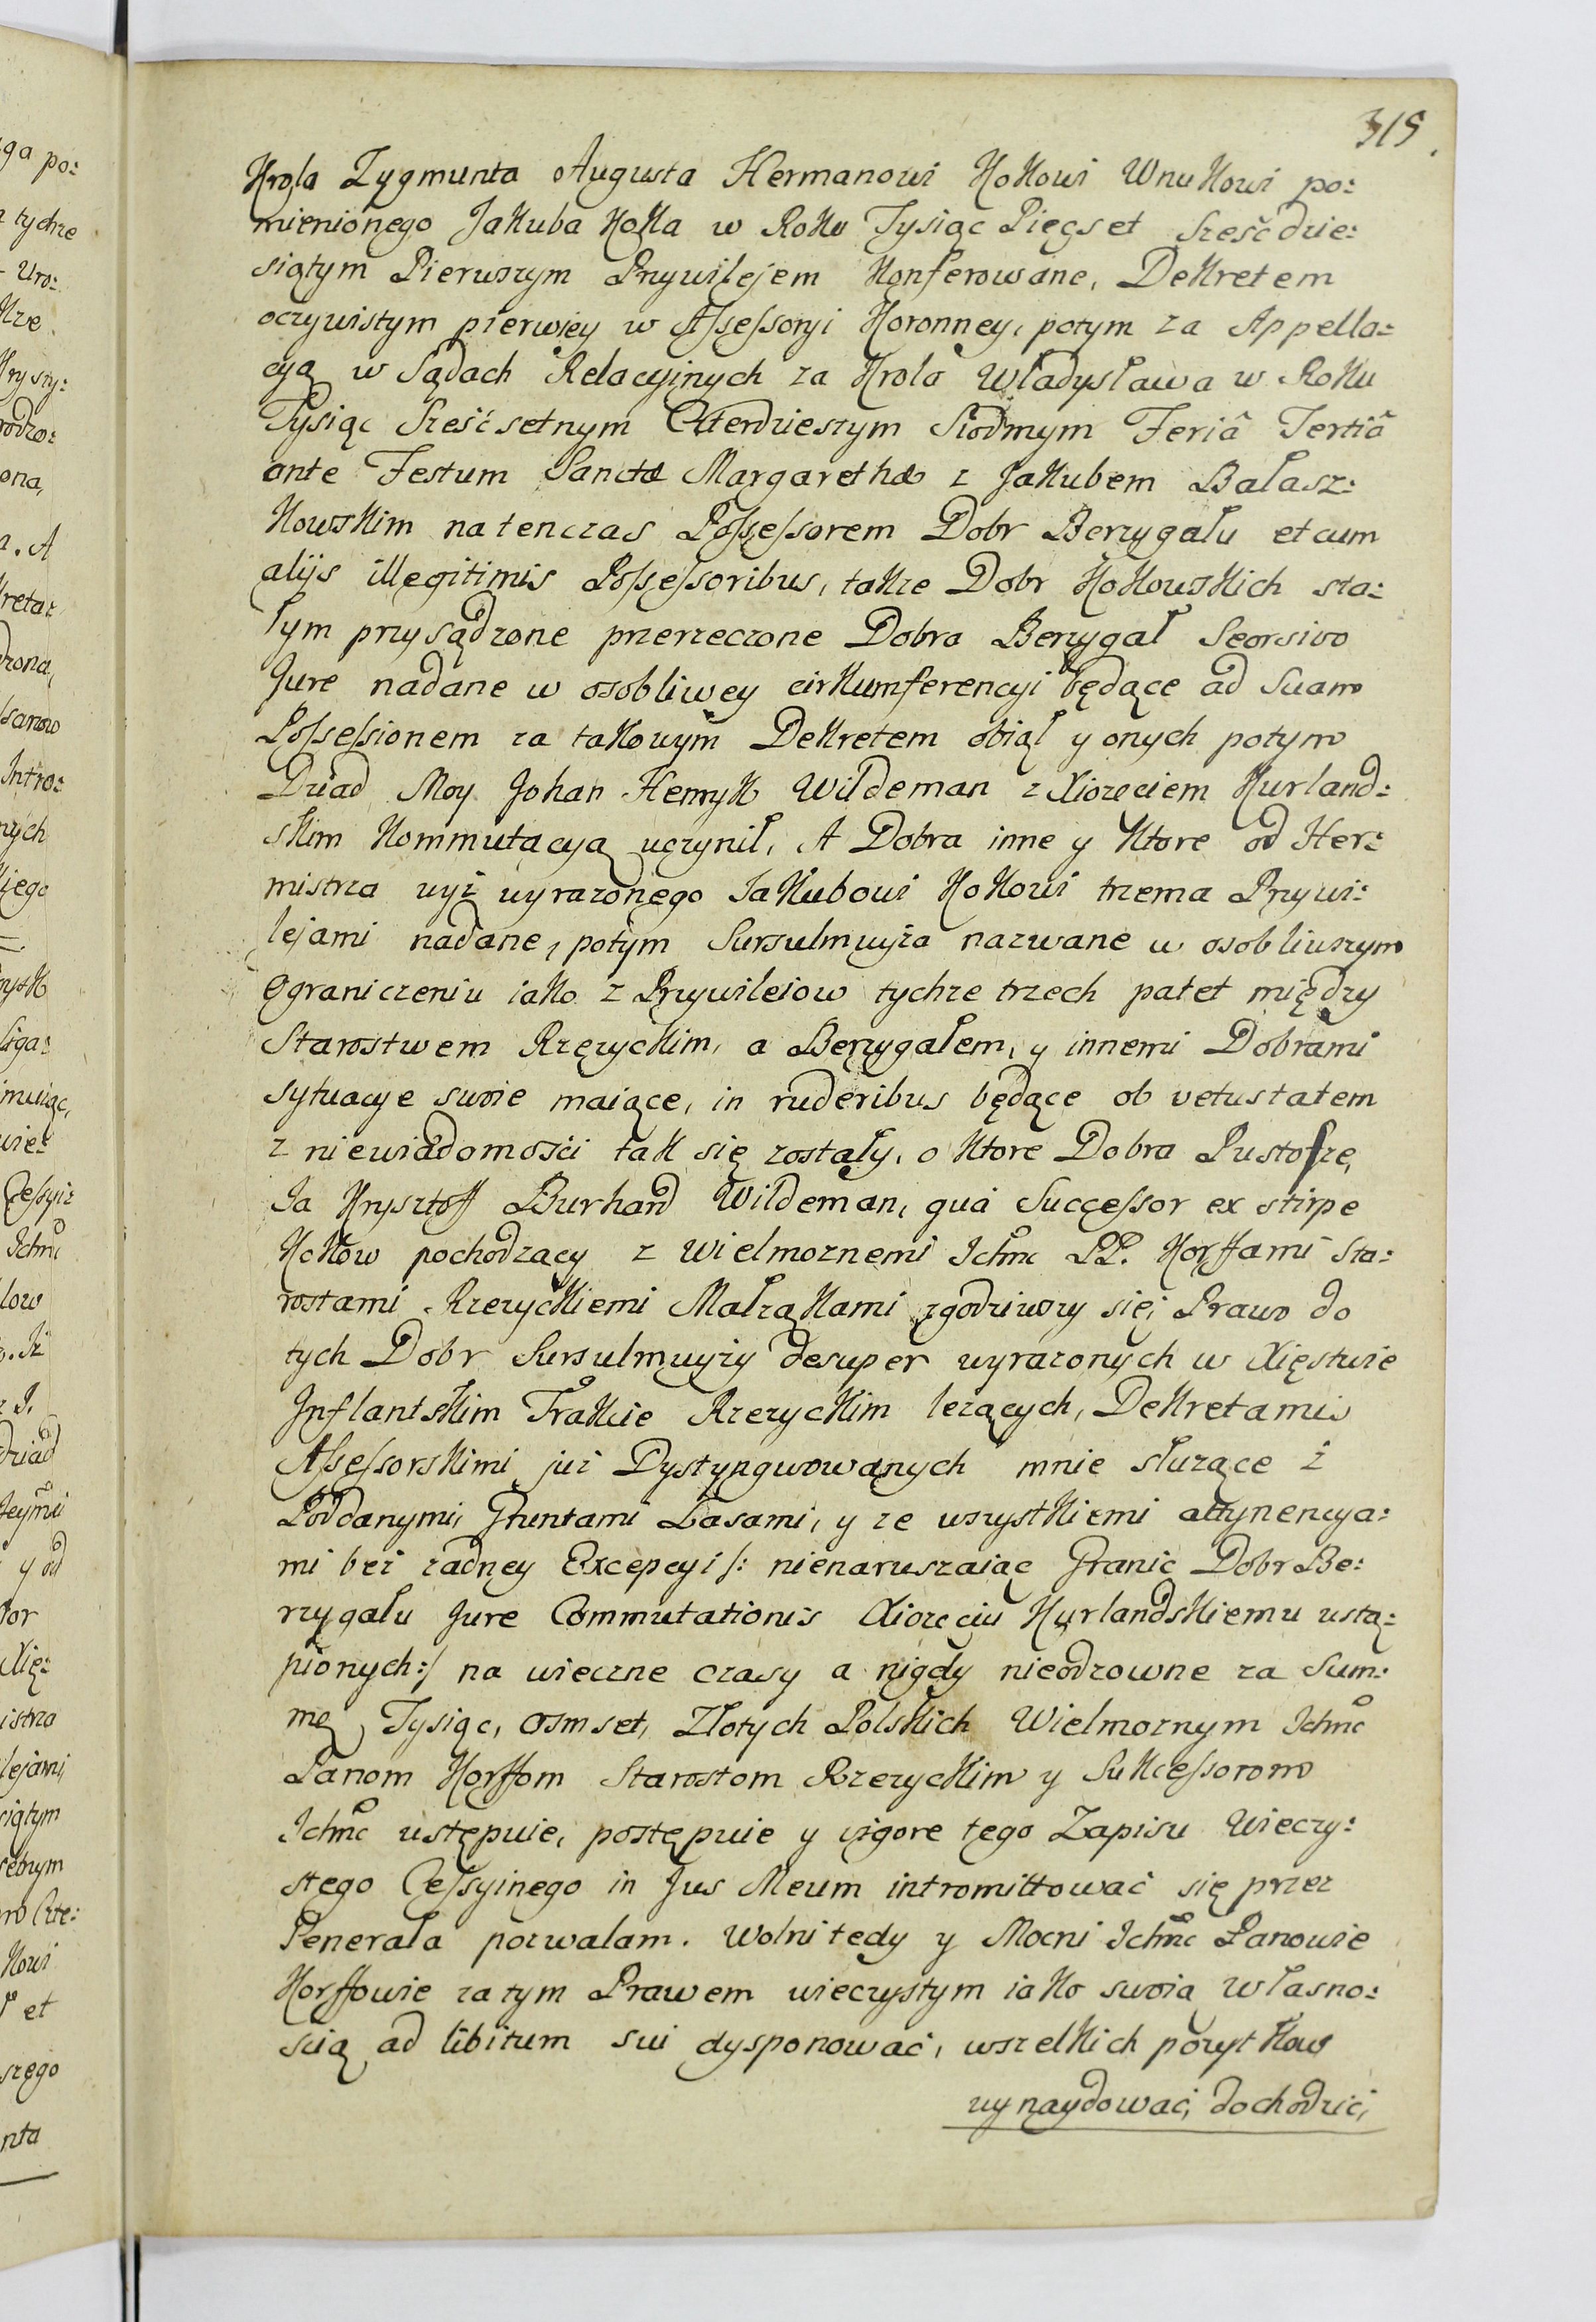 315.
Krola Zygmunta Augusta Hermanowi Kokowi Wnukowi po:
mienionego Jakuba Koka w Roku Tysiąc Pięcset Sześćdzie:
siątym Pierwszym Przywilejem Konferowane, Dekretem
oczywistym pierwiey w Assessoryi Koronney, potym za Appella:
cyą w Sądach Relacyinych za Krola Władysława w Roku
Tysiąc Sześćsetnym Czterdziestym Siodmym Feriâ Tertiâ
ante Festum Sanctæ Margarethæ z Jakubem Bałasz:
Kowskim natenczas Possessorem Dobr Berzygału et cum
alijs illegitimis Possessoribus, takze Dobr Kokowskich sta:
łym przysądzone przerzeczone Dobra Berzygał Seorsivo
Jure nadane w osobliwey cirkumferencyi będące ad Suam
Possessionem za takowym Dekretem obiął y onych potym
Dziad Moy Johan Henryk Wildeman z Xiozeciem Kurland:
skim Kommutacyą uczynił, A Dobra inne y Ktore od Her:
mistrza wyż wyrazonego Jakubowi Kokowi trzema Przywi:
lejami nadane, potym Sursulmuyża nazwane w osobliwszym
Ograniczeniu iako z Przywileiow tychze trzech patet między
Starostwem Rzęzyckim, a Berzygałem, y innemi Dobrami
sytuacye swoie maiące, in ruderibus będące ob vetustatem
z niewiadomości tak się zostały, o Ktore Dobra Pustosze,
Ja Krysztoff Burhard Wildeman, qua Successor ex stirpe
Kokow pochodzący z Wielmoznemi Ichmc PP. Korffami Sta:
rostami Rzezyckiemi Małząkami zgodziwszy się, Prawo do
tych Dobr Sursulmuyży desuper wyrazonych w Xięstwie
Inflantskim Trakcie Rzezyckim lezących, Dekretami
Assessorskimi już Dystyngwowanych mnie słuzące z
Poddanymi, Gruntami Lasami, y ze wszystkiemi attynencya:
mi bez zadney Excepcyi /: nienaruszaiąc Granic Dobr Be:
rzygału Jure Commutationis Xiozęciu Kurlandskiemu ustą:
pionych :/ na wieczne czasy a nigdy nieodzowne za Sum:
mę Tysiąc, Osmset, Złotych Polskich Wielmoznym Ichmc
Panom Korffom Starostom Rzezyckim y Sukcessorom
Ichmc ustępuie, postępuie y vigore tego Zapisu Wieczy:
stego Cessyinego in Jus Meum intromittować się przez
Generała pozwalam. Wolni tedy y Mocni Ichmc Panowie
Korffowie za tym Prawem wieczystym iako swoią Własno:
scią ad libitum sui dysponować, wszelkich pozytkow
wynaydować, dochodzić,